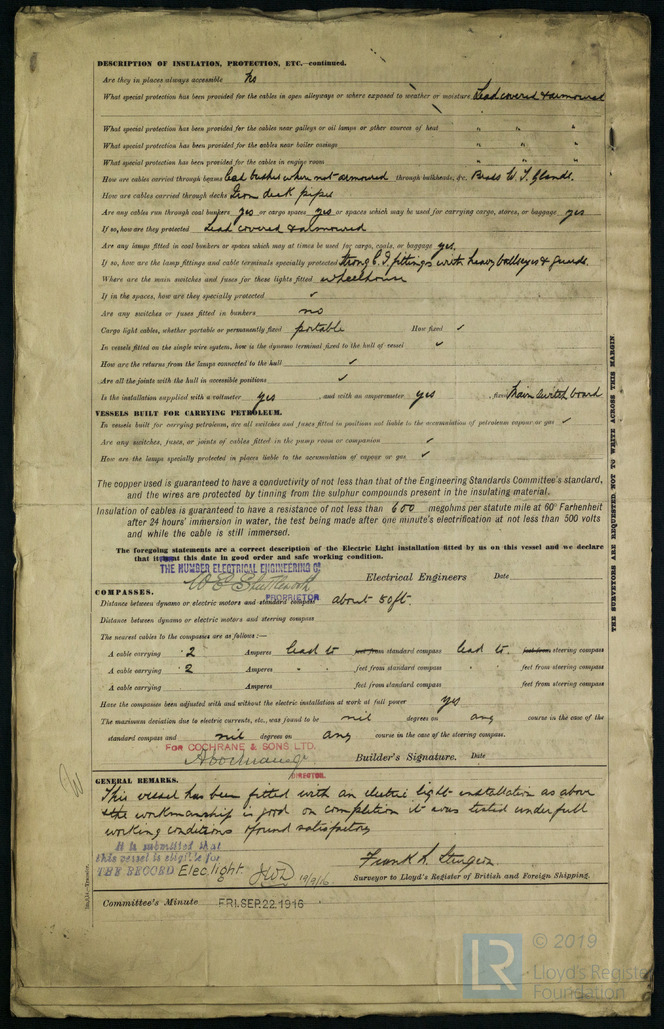 DESCRIPTION OF INSULATION, PROTECTION, ETC.—continued.
Are they in places always accessible No
What special protection has been provided for the cables in open alleyways or where exposed to weather or moisture Lead covered & armoured
What special protection has been provided for the cables near galleys or oil lamps or other sources of heat " " "
What special protection has been provided for the cables near boiler casings " " "
What special protection has been provided for the cables in engine room " " "
How are cables carried through beams Lead bushes when not armoured through bulkheads, &c. Brass W. T. Glands.
How are cables carried through decks Iron deck pipes
Are any cables run through coal bunkers yes or cargo spaces yes or spaces which may be used for carrying cargo, stores, or baggage yes
If so, how are they protected Lead covered & armoured
Are any lamps fitted in coal bunkers or spaces which may at times be used for cargo, coals, or baggage yes.
If so, how are the lamp fittings and cable terminals specially protected Strong C. I. fittings with heavy bullseyes & guards.
Where are the main switches and fuses for these lights fitted wheelhouse
If in the spaces, how are they specially protected ✓
Are any switches or fuses fitted in bunkers no
Cargo light cables, whether portable or permanently fixed portable How fixed ✓
In vessels fitted on the single wire system, how is the dynamo terminal fixed to the hull of vessel ✓
How are the returns from the lamps connected to the hull ✓
Are all the joints with the hull in accessible positions ✓
Is the installation supplied with a voltmeter yes , and with an amperemeter yes , fixed Main Switch board
VESSELS BUILT FOR CARRYING PETROLEUM.
In vessels built for carrying petroleum, are all switches and fuses fitted in positions not liable to the accumulation of petroleum vapour or gas ✓
Are any switches, fuses, or joints of cables fitted in the pump room or companion ✓
How are the lamps specially protected in places liable to the accumulation of vapour or gas ✓
The copper used is guaranteed to have a conductivity of not less than that of the Engineering Standards Committee's standard,
and the wires are protected by tinning from the sulphur compounds present in the insulating material.
Insulation of cables is guaranteed to have a resistance of not less than 600 megohms per statute mile at 60° Farhenheit
after 24 hours' immersion in water, the test being made after one minute's electrification at not less than 500 volts
and while the cable is still immersed.
The foregoing statements are a correct description of the Electric Light installation fitted by us on this vessel and we declare
that it is at this date in good order and safe working condition.
THE HUMBER ELECTRICAL ENGINEERING Co
W E Shuttleworth Electrical Engineers Date
PROPRIETOR
COMPASSES.
Distance between dynamo or electric motors and standard compass about 50 ft.
Distance between dynamo or electric motors and steering compass
The nearest cables to the compasses are as follows:—
A cable carrying .2 Amperes lead to feet from standard compass lead to. feet from steering compass
A cable carrying .2 Amperes " " feet from standard compass " " feet from steering compass
A cable carrying Amperes feet from standard compass feet from steering compass
Have the compasses been adjusted with and without the electric installation at work at full power yes
The maximum deviation due to electric currents, etc., was found to be nil degrees on any course in the case of the
standard compass and nil degrees on any course in the case of the steering compass.
FOR COCHRANE & SONS LTD.
A Cochrane Jr Builder's Signature. Date
DIRECTOR.
GENERAL REMARKS.
This vessel has been fitted with an electric light installation as above
& the workmanship is good on completion it was tested under full
working conditions & found satisfactory
It is submitted that
this vessel is eligible for
THE RECORD Elec. light. JWD 19/9/16
Frank L. Sturgeon.
Surveyor to Lloyd's Register of British and Foreign Shipping.
Committee's Minute FRI. SEP. 22. 1916
THE SURVEYORS ARE REQUESTED NOT TO WRITE ACROSS THIS MARGIN
LR © 2019
Lloyd's Register
Foundation